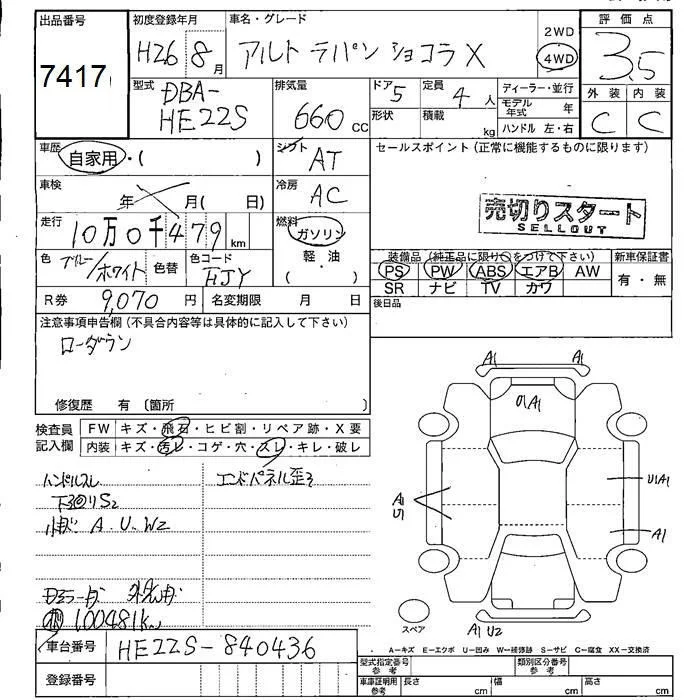 出品番号
7417
初度登録年月
H26 8 月
車名・グレード
アルト ラパン ショコラ X
2WD
4WD
評価点
3.5
外装 内装
C C
型式
DBA-
HE22S
排気量
660 cc
ドア 5
形状
定員 4 人
積載 kg
ディーラー・並行
モデル年式 年
ハンドル 左・右
車歴
自家用・( )
シフト AT
セールスポイント(正常に機能するものに限ります)
車検
年 月( 日)
冷房 AC
売切りスタート
SELLOUT
走行
10万0千479 km
燃料
ガソリン
軽・油
( )
色 ブルー/ホワイト 色替 色コード
装備品(純正品に限り○をつけて下さい)
新車保証書
PS PW ABS エアB AW
SR ナビ TV カワ
有・無
R券 9,070 円 名変期限 月 日
後日品
注意事項申告欄(不具合内容等は具体的に記入して下さい)
ローダウン
修復歴 有 〔箇所 〕
検査員
記入欄
FW キズ・飛石・ヒビ割・リペア跡・X要
内装 キズ・汚レ・コゲ・穴・スレ・キレ・破レ
ハンドルスレ
エンドパネル歪ミ
下廻りS2
小キズ A.U.W2
100481k
A1 A1
U1A1
A1
U1
U1A1
A1
スペア
A1 U2
A-キズ E-エクボ U-凹み W-補修跡 S-サビ C-腐食 XX-交換済
車台番号 HE22S-840436
登録番号
型式指定番号
参考
類別区分番号
参考
車庫証明用
参考
長さ cm 幅 cm 高さ cm